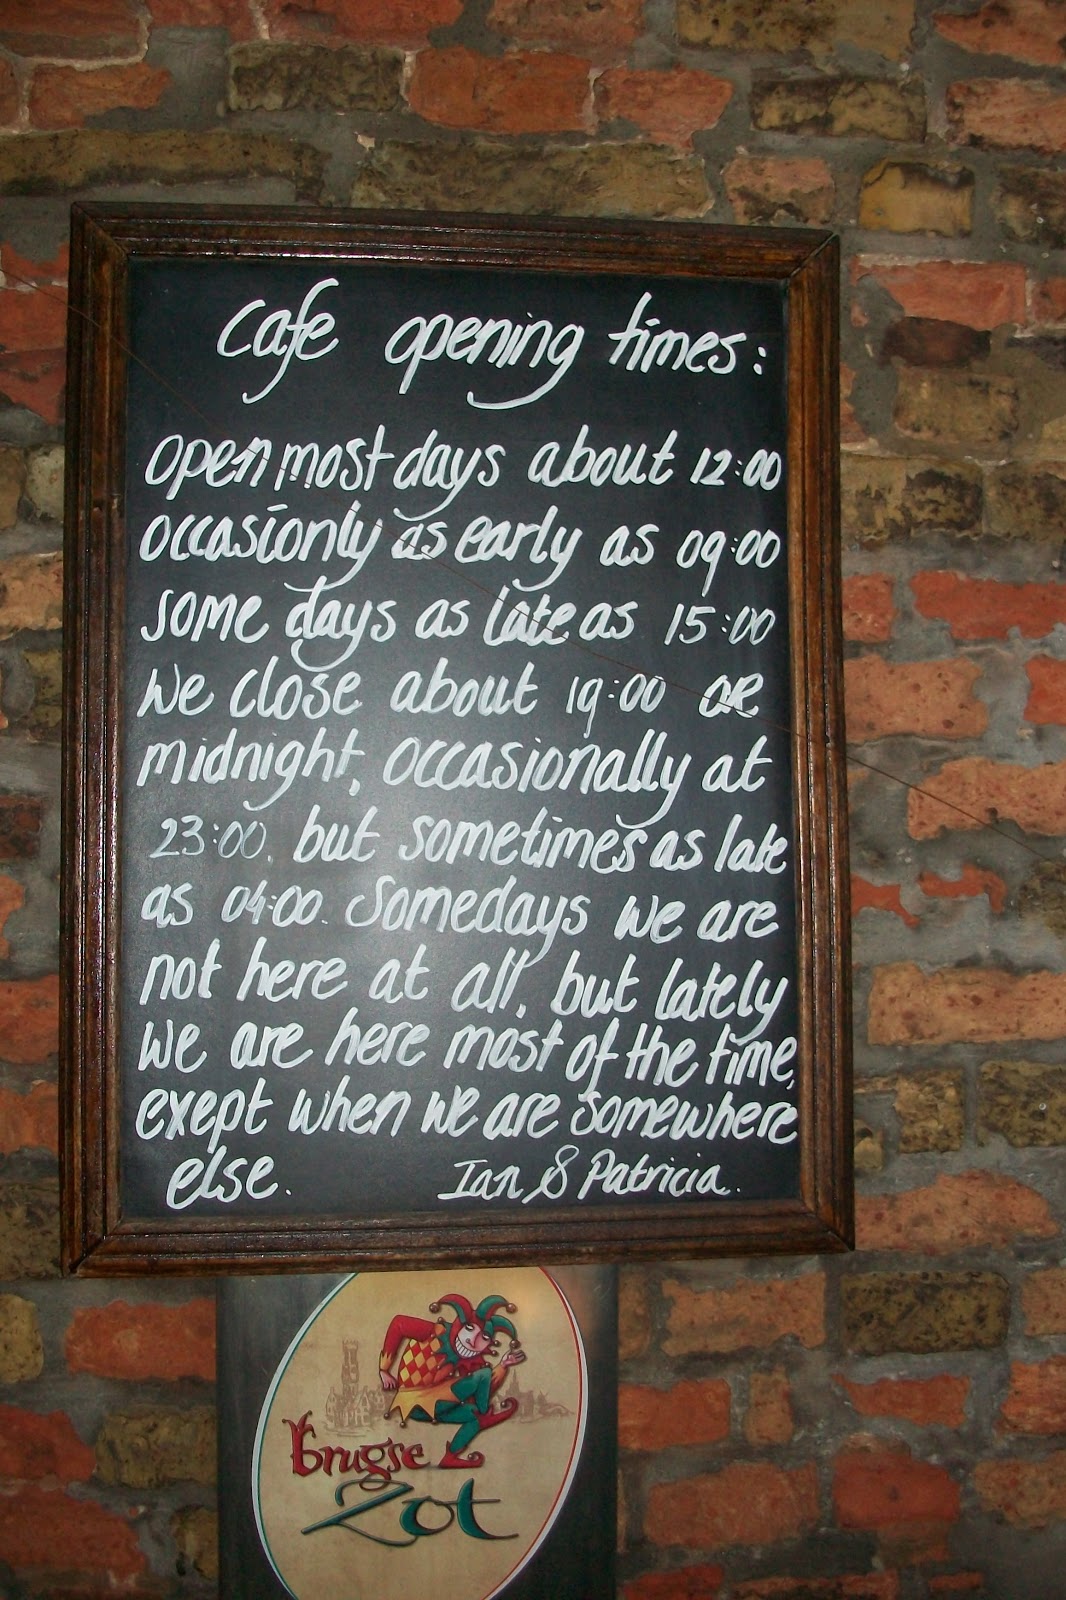 Cafe opening times:
Open most days about 12:00
occasionly as early as 09:00
some days as late as 15:00
We close about 19:00 OR
midnight, occasionally at
23:00. but sometimes as late
as 04:00. Somedays we are
not here at all, but lately
We are here most of the time,
exept when we are somewhere
else. Ian & Patricia.
Brugse
Zot